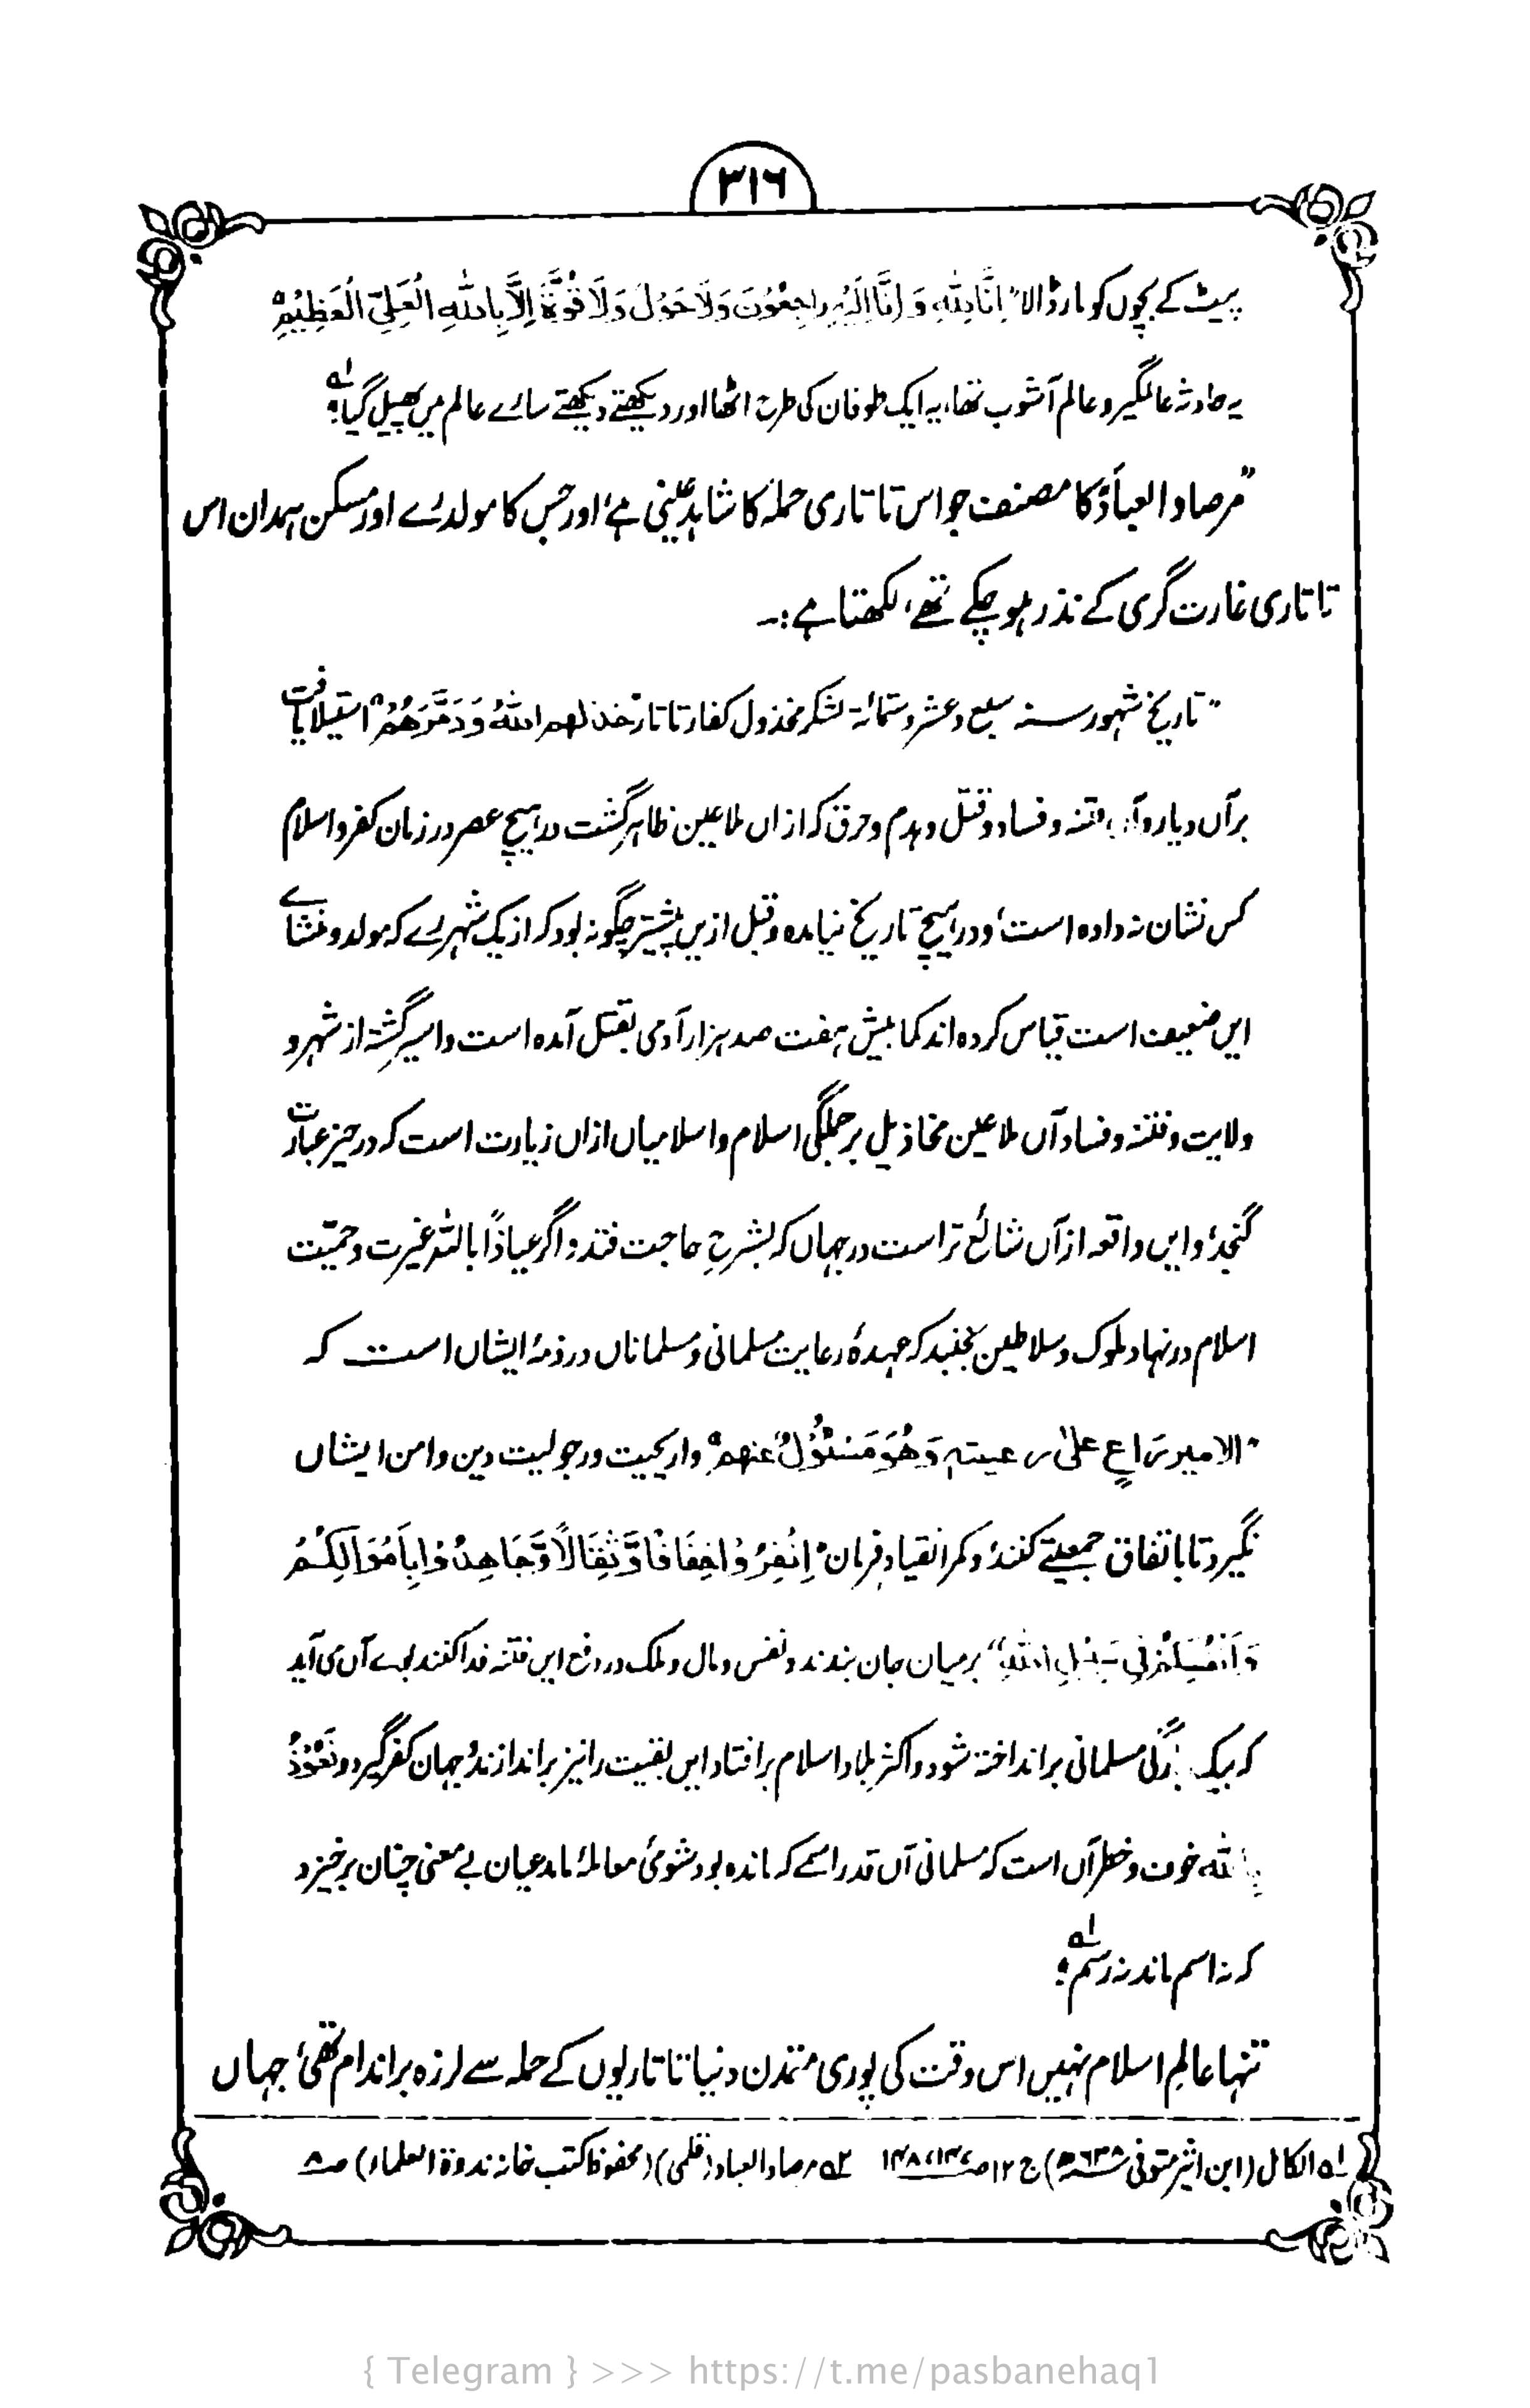 ۳۱۶
پیٹ کے بچوں کو مار ڈالا" اِنَّا لِلّٰهِ وَ اِنَّا اِلَیْهِ رَاجِعُوْنَ وَلَا حَوْلَ وَلَا قُوَّةَ اِلَّا بِاللّٰهِ الْعَلِیِّ الْعَظِیْمِ"
یہ حادثہ عالمگیر و عالم آشوب تھا، یہ ایک طوفان کی طرح اٹھا اور دیکھتے دیکھتے سارے عالم میں پھیل گیا؛ لہ
"مرصاد العباد" کا مصنف جو اس تا تاری حملہ کا شاہد عینی ہے، اور جس کا مولد رے اور مسکن ہمدان اس
تا تاری غارت گری کے نذر ہو چکے تھے، لکھتا ہے:۔
"تاریخ شہور سنہ سبع و عشر و ستمائۃ لشکر مخذول کفار تا تار خذلهم اللّٰهُ وَدَمَّرَهُمْ" استیلا یافت
برآں دیار و آں فتنہ و فساد و قتل و ہدم و حرق کہ ازاں ملاعین ظاہر گشت در ہیچ عصر در زمان کفر و اسلام
کس نشان نہ دادہ است، و در ہیچ تاریخ نیامدہ و قبل ازیں پیشتر چگونہ بود کہ از یک شہر رے کہ مولد و منشاے
ایں ضعیف است قیاس کردہ اند کما بیش ہفت صد ہزار آدمی بقتل آمدہ است و اسیر گشتہ از شہر و
ولایت و فتنہ و فساد آں ملاعین مخاذیل بر جملگی اسلام و اسلامیاں ازاں زیارت است کہ در حیز عبارت
گنجد، و ایں واقعہ ازآں شائع تر است در جہاں کہ بشرحِ حاجت فتد و اگر عیاذًا باللّٰہ غیرت و حمیّت
اسلام در نہاد ملوک و سلاطین بجنبد کہ عہدۂ رعایت مسلمانی و مسلماناں در ذمۂ ایشاں است کہ
"الامیر راعٍ علیٰ رعیتہٖ وَهُوَ مَسْئُوْلٌ عنهم" و اریحیت و رجولیت دین دامن ایشاں
نگیرد تا با تفاق جمعیتے کنند، و کمر انقیاد فرمان "اِنْفِرُوْا خِفَافًا وَّثِقَالًا وَّجَاهِدُوْا بِاَمْوَالِكُمْ
وَاَنْفُسِكُمْ فِیْ سَبِیْلِ اللّٰهِ" بر میان جان بندند و نفس و مال و ملک در دفع ایں فتنہ فدا کنند بوے آں می آید
کہ بیک بارگی مسلمانی بر انداختہ شود و اکثر بلاد اسلام بر افتاد ایں بقیت را نیز بر اندازند، جہان کفر گیرد و نَعُوْذُ
بِاللّٰه خوف و خطر آں است کہ مسلمانی آں قدر اسمے کہ ماندہ بود شومئ معاملۂ ما مدعیان بے معنی چنان برخیزد
کہ نہ اسم ماند نہ رسم؛ لہ
تنہا عالمِ اسلام نہیں اس وقت کی پوری متمدن دنیا تا تاریوں کے حملہ سے لرزہ بر اندام تھی، جہاں
لہ الکامل (ابن اثیر متوفی ۶۳۸ھ) ج ۱۲ ص ۱۴۷، ۱۴۸ ۲ہ مرصاد العباد (قلمی) (محفوظ کتب خانہ ندوۃ العلماء) ص ۸
{ Telegram } >>> https://t.me/pasbanehaq1